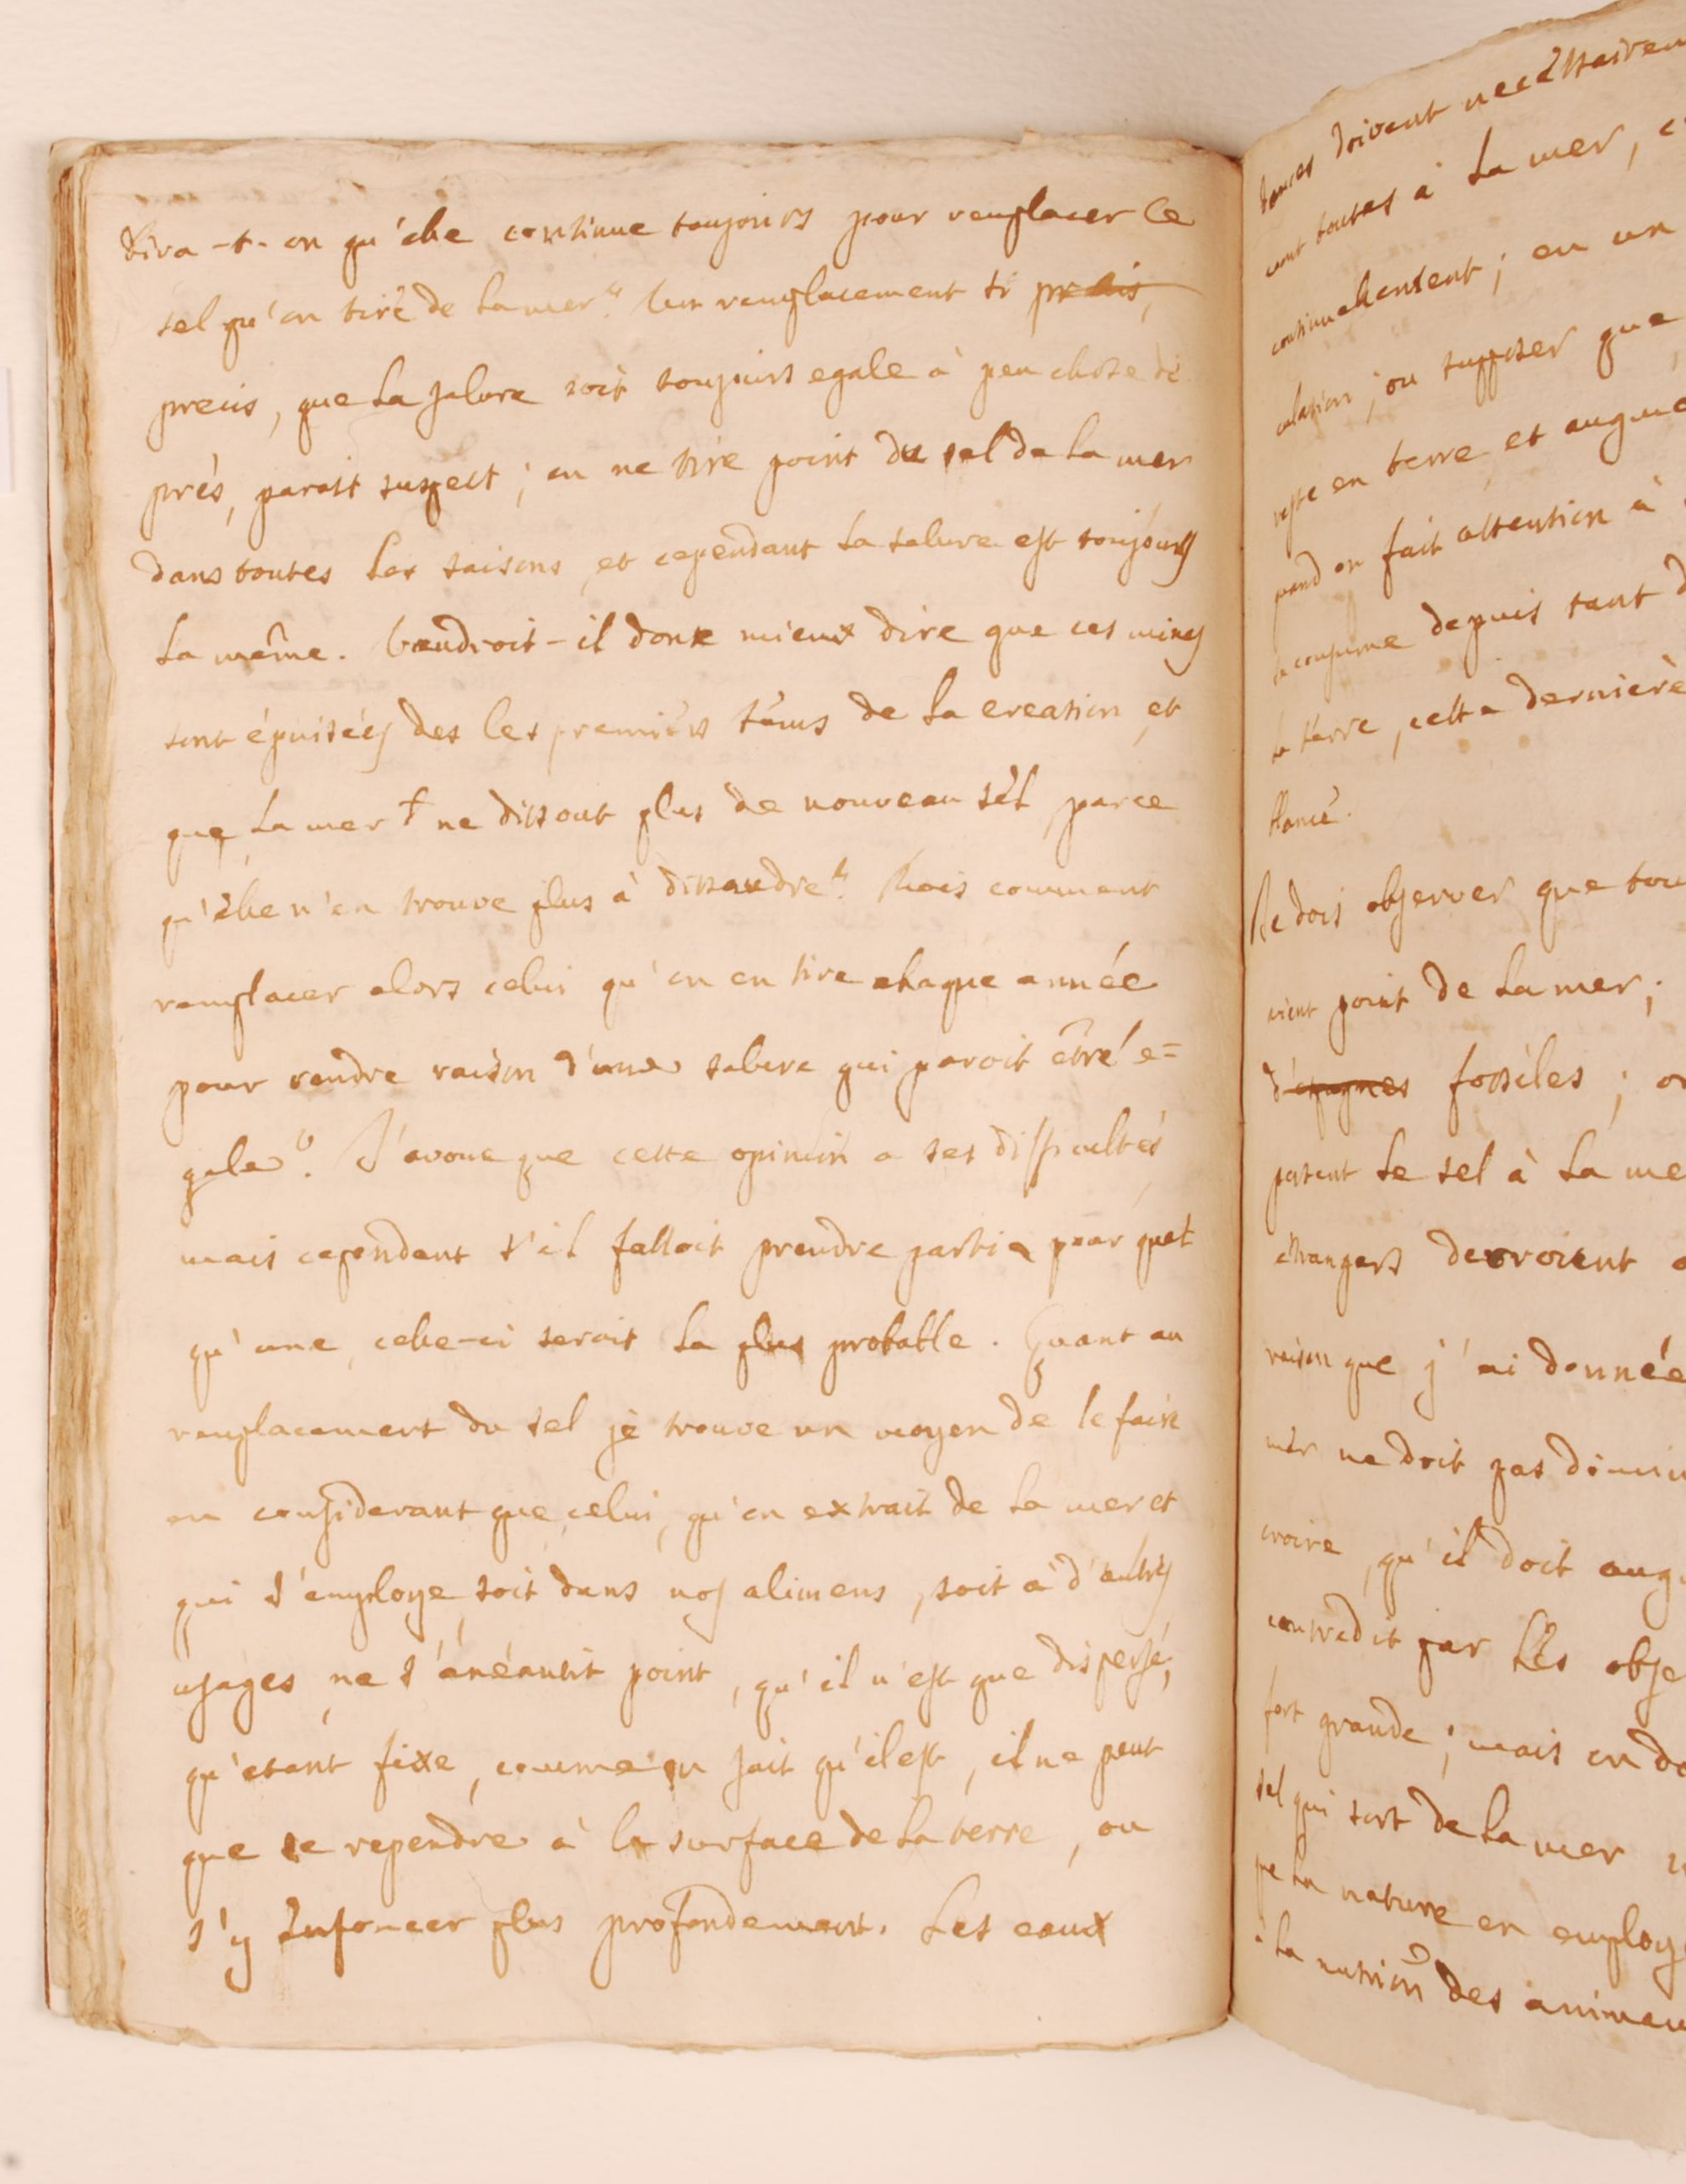 Dira-t-on qu'elle continue toujours pour remplacer le
sel qu'on tire de la mer? Un remplacement si precis,
precis, que la salure soit toujours egale à peu chose de
près, paroit suspect; on ne tire point du sel de la mer
dans toutes les saisons, et cependant la salure est toujours
la même. Vaudroit-il donc mieux dire que ces mines
sont épuisées des les premiers téms de la creation, et
que la mer † ne dissout plus de nouveau sèl, parce
qu'elle n'en trouve plus à dissoudre? Mais comment
remplacer alors celui qu'on en tire chaque année
pour rendre raison d'une salure qui paroit être é=
gale? J'avoue que cette opinion a ses difficultés,
mais cependant s'il falloit prendre parti pour quel
qu'une, celle-ci seroit la plus probable. Quant au
remplacement du sel je trouve un moyen de le faire
en considerant que celui, qu'on extrait de la mer et
qui s'employe soit dans nos alimens, soit à d'autres
usages, ne s'anéantit point, qu'il n'est que dispersé,
qu'etant fixe, comme on sait qu'il est, il ne peut
que se rependre à la surface de la terre, ou
s'y enfoncer plus profondement. Les eaux
douces doivent necessairem
vont toutes à la mer, e
continuellement; en un
culation; ou supposer que
reste en terre, et augme
quand on fait attention à
se consume depuis tant d
la terre, cette dernière
blance.
Je dois observer que tou
vient point de la mer;
d'epagnes fossiles; o
portent le sel à la me
étrangers devroient
raison que j'ai donnée
mér ne doit pas dimin
croire, qu'il doit aug
contredit par les obse
fort grande; mais on do
sel qui sort de la mer
que la nature en employ
à la nutriõn des animau